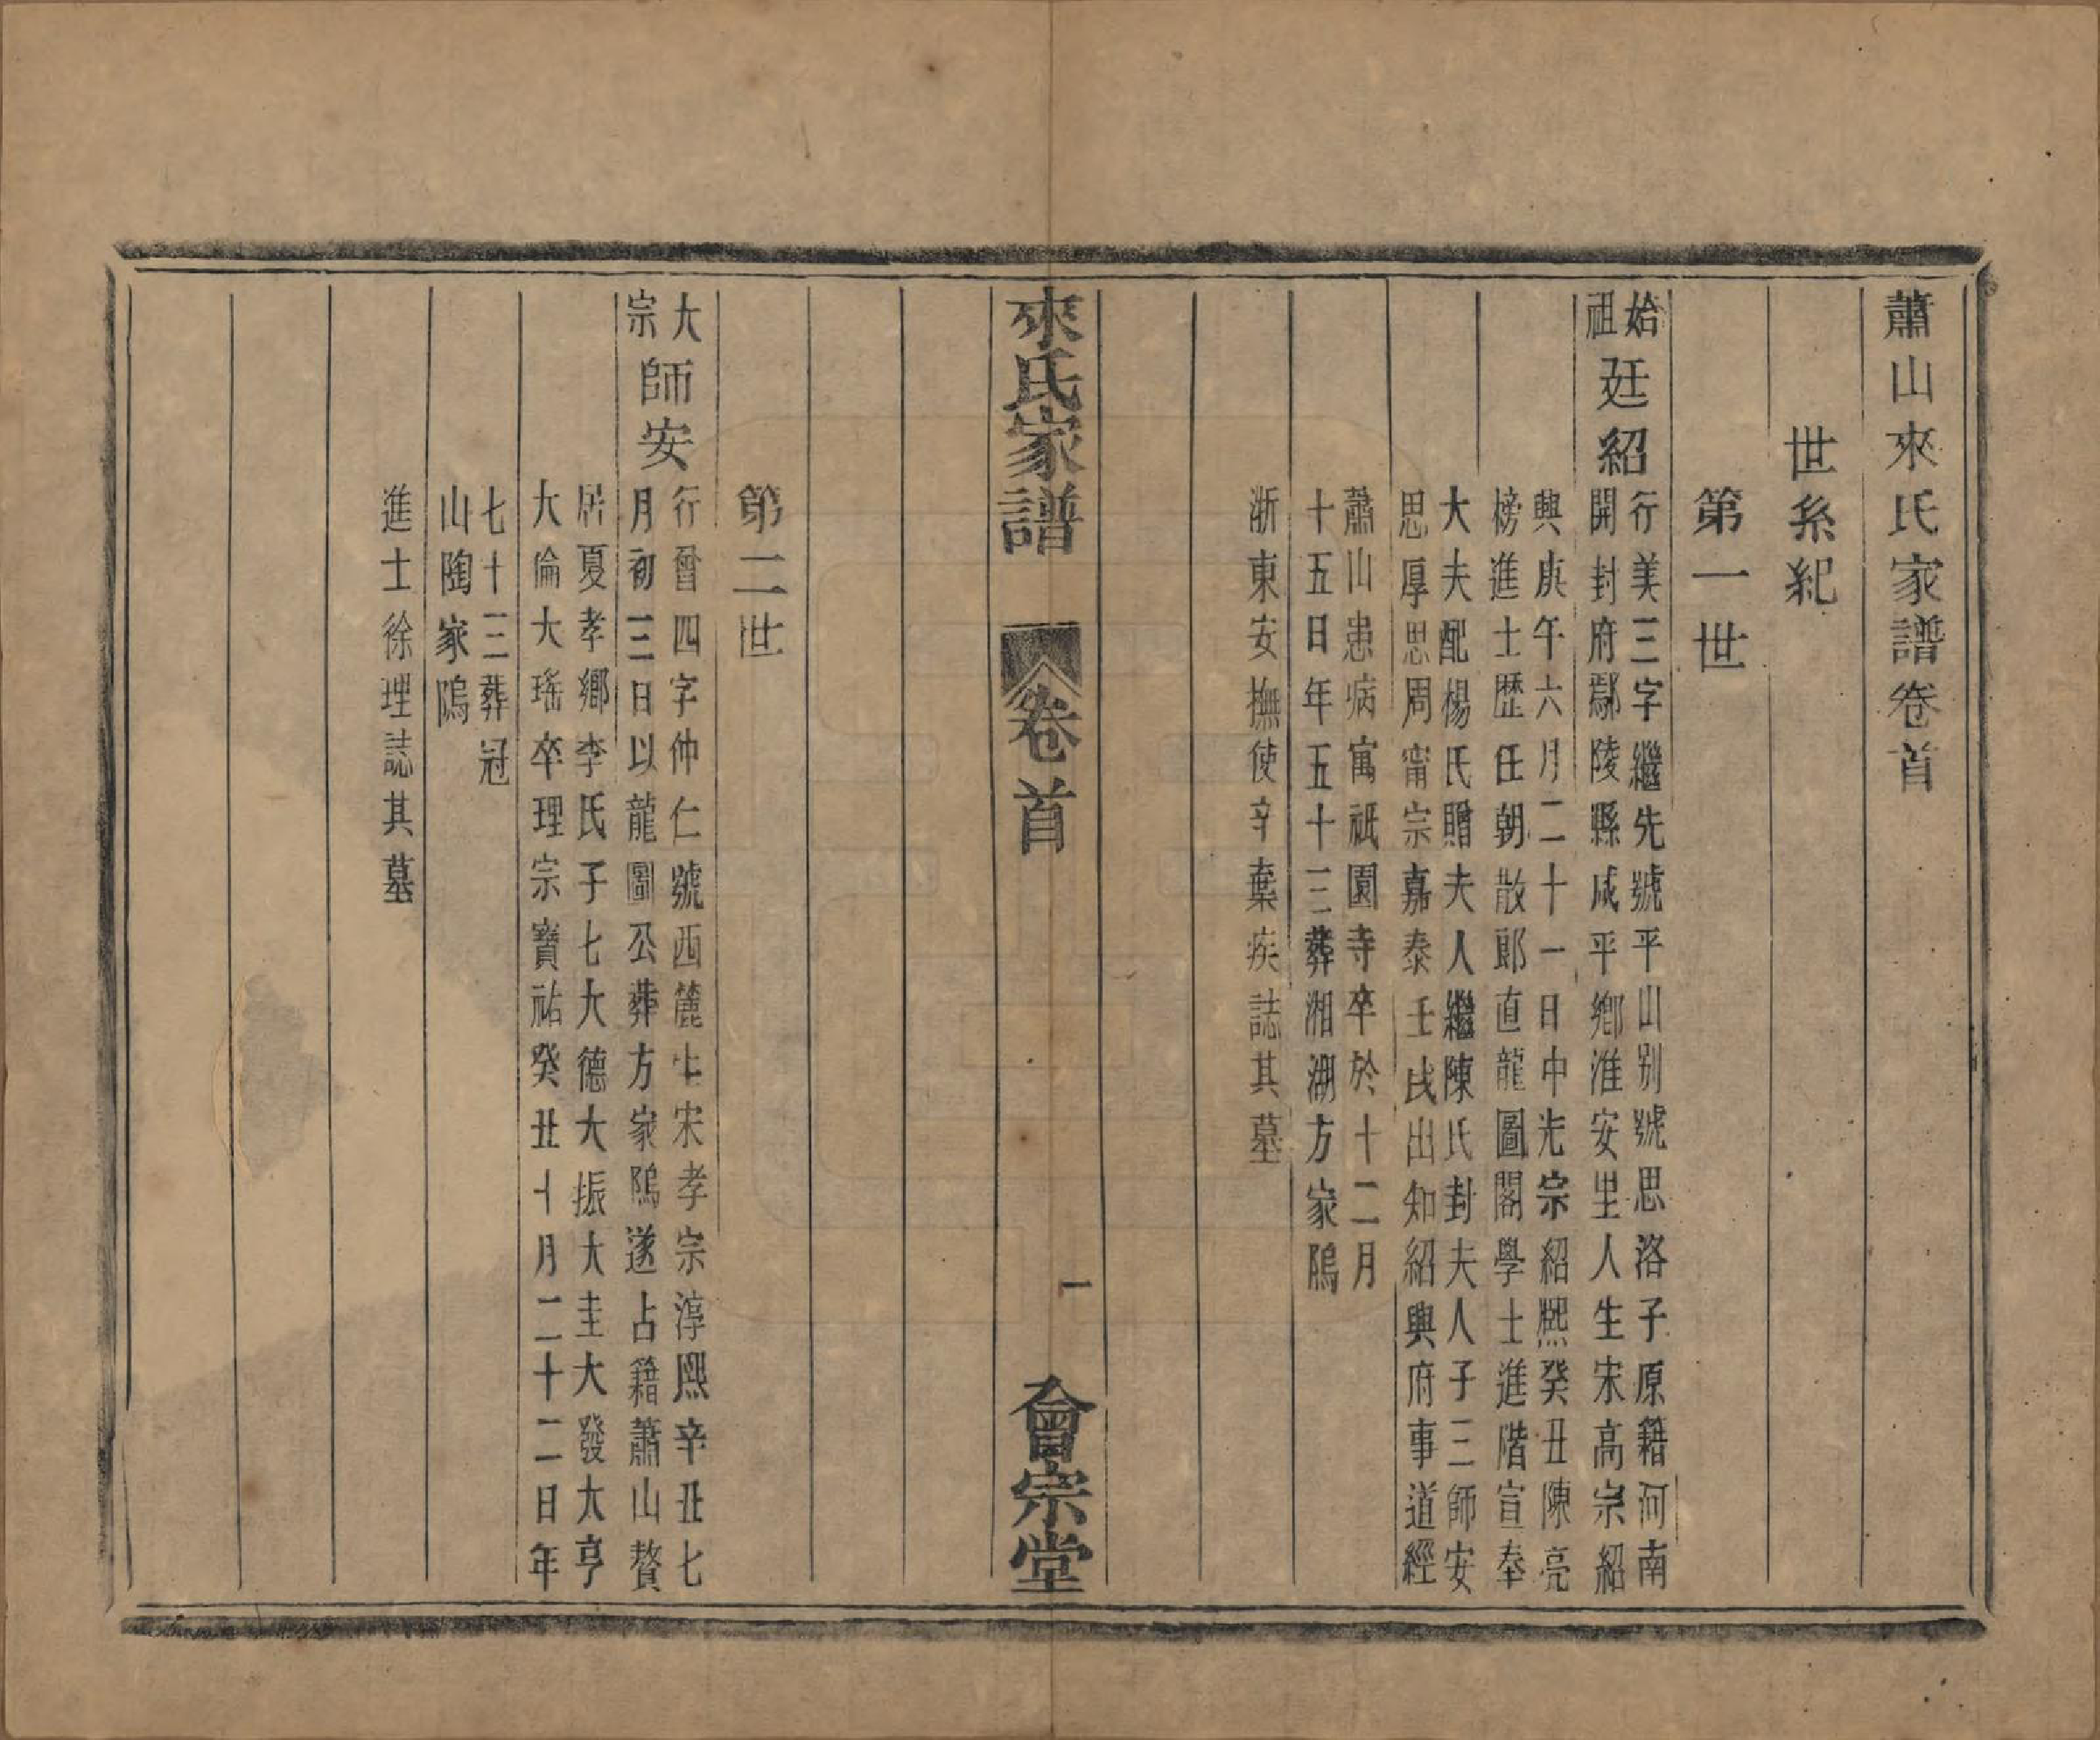 蕭山來氏家譜卷首
世系紀
第一世
始
祖
廷紹
行美三字繼先號平山別號思洛子原籍河南
開封府鄢陵縣咸平鄉淮安里人生宋高宗紹
興庚午六月二十一日中光宗紹熙癸丑陳亮
榜進士歷任朝散郎直龍圖閣學士進階宣奉
大夫配楊氏贈夫人繼陳氏封夫人子三師安
思厚思周甯宗嘉泰壬戌出知紹興府事道經
蕭山患病寓祇園寺卒於十二月
十五日年五十三葬湘湖方家隖
浙東安撫使辛棄疾誌其墓
來氏家譜
卷首
一
會宗堂
第二世
大
宗
師安
行曾四字仲仁號西麓生宋孝宗淳熙辛丑七
月初三日以龍圖公葬方家隖遂占籍蕭山贅
居夏孝鄉李氏子七大德大振大圭大發大亨
大倫大瑤卒理宗寶祐癸丑十月二十二日年
七十三葬冠
山陶家隖
進士徐理誌其墓